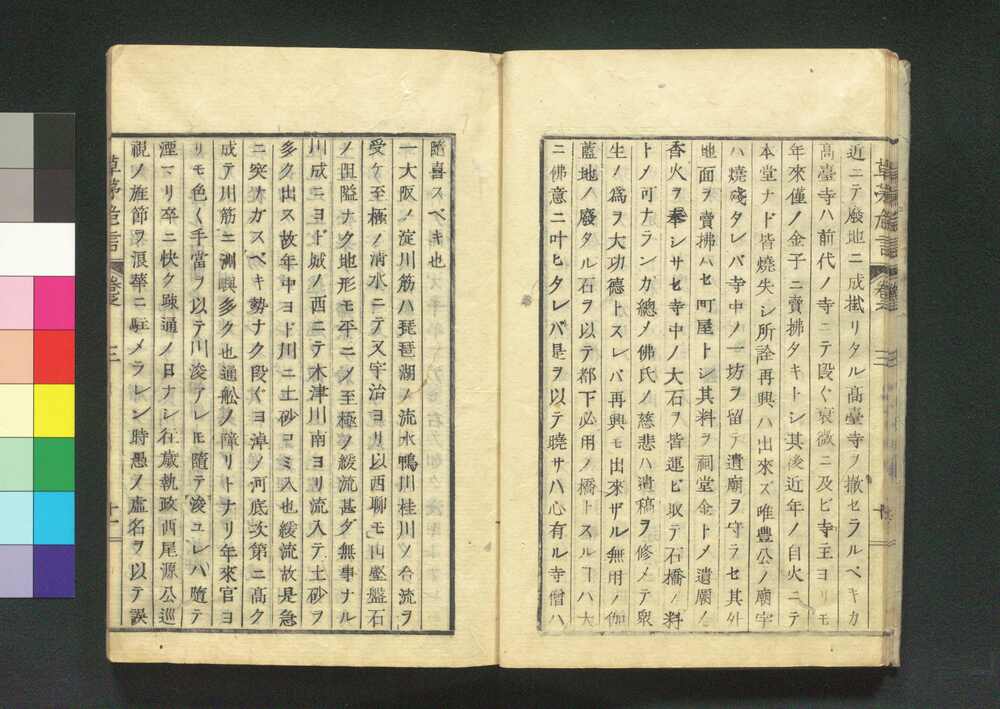 近ニテ廢地ニ成掛リタル高臺寺ヲ撤セラルベキカ
高臺寺ハ前代ノ寺ニテ段〻衰微ニ及ビ寺主ヨリモ
年來僅ノ金子ニ賣拂タキトシ其後近年ノ自火ニテ
本堂ナド皆燒失シ所詮再興ハ出來ズ唯豐公ノ廟宇
ハ燒殘タレバ寺中ノ一坊ヲ留テ遺廟ヲ守ラセ其外
地面ヲ賣拂ハセ町屋トシ其料ヲ祠堂金トメ遺廟ノ
香火ヲ奉シサセ寺中ノ大石ヲ皆運ビ取テ石橋ノ料
トノ可ナランカ總メ佛氏ノ慈悲ハ遺稿ヲ修メテ衆
生ノ爲ヲ大功德トスレバ再興モ出來ザル無用ノ伽
藍地ノ廢タル石ヲ以テ都下必用ノ橋トスルヿハ大
ニ佛意ニ叶ヒタレバ是ヲ以テ曉サハ心有ル寺僧ハ
草茅危言
三
十
隨喜スベキ也
一大阪ノ淀川筋ハ琵琶湖ノ流水鴨川桂川ノ合流ヲ
受ケ至極ノ淸水ニテ又宇治ヨリ以西聊モ山壑盤石
ノ阻隘ナク地形モ平ニノ至極ノ緩流甚ダ無事ナル
川成ニヨド城ノ西ニテ木津川南ヨリ流入テ土砂ヲ
多ク出ス故年中ヨド川ニ土砂コミ入也緩流故是急
ニ突ナガスベキ勢ナク段〻ヨ淖ノ河底次第ニ高ク
成テ川筋ニ洲嶼多ク也通舩ノ障リトナリ年來官ヨ
リモ色〻手當ヲ以テ川浚アレ𪜈隨テ浚ユレハ隨テ
湮マリ卒ニ快ク疎通ノ日ナシ徃歲執政西尾源公巡
視ノ旌節ヲ浪華ニ駐メラレシ時愚ノ虛名ヲ以テ誤
草茅危言
三
十一